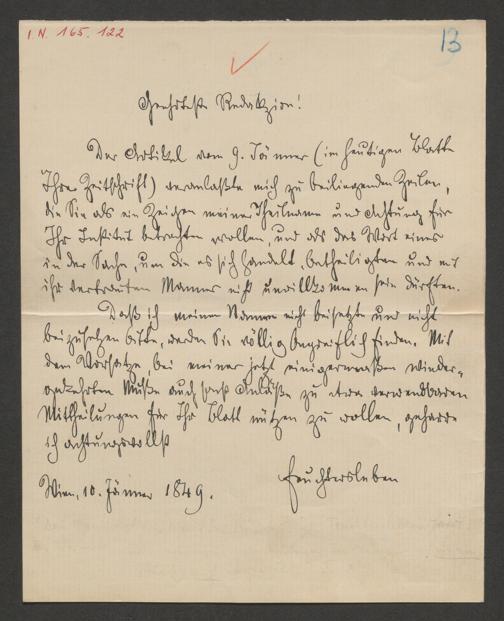 I.N. 165.122
13
Geehrteste Redakzion!
Der Artikel vom 9. Jänner (im heutigen Blatte
Ihrer Zeitschrift) veranlaßte mich zu beiliegenden Zeilen,
die Sie als ein Zeichen meiner Theilname und Achtung für
Ihr Institut betrachten wollen, und als das Wort eines
in der Sache, um die es sich handelt, betheiligten und mit
ihr vertrauten Mannes nicht unwillkommen sein dürften.
Daß ich meinen Namen nicht beisetzte und nicht
beizusetzen bitte, werden Sie völlig begreiflich finden. Mit
dem Vorsatze, bei meiner jetzt einigermaßen wieder-
gekehrten Muße auch sonst Anläße zu etwa verwendbaren
Mittheilungen für Ihr Blatt nützen zu wollen, geharre
ich achtungsvollst
Feuchtersleben
Wien, 10. Jänner 1849.